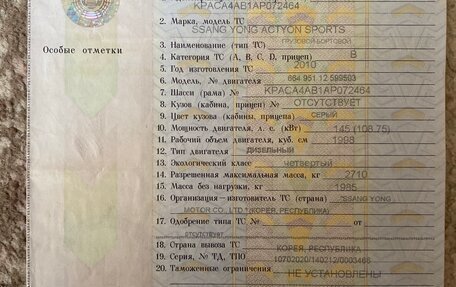 KPACA4AB1AP072464
2. Марка, модель ТС
SSANG YONG ACTYON SPORTS
Особые отметки
3. Наименование (тип ТС) ГРУЗОВОЙ-БОРТОВОЙ
4. Категория ТС (A, B, C, D, прицеп) B
5. Год изготовления ТС 2010
6. Модель, № двигателя 664 951 12 599503
7. Шасси (рама) № KPACA4AB1AP072464
8. Кузов (кабина, прицеп) № ОТСУТСТВУЕТ
9. Цвет кузова (кабины, прицепа) СЕРЫЙ
10. Мощность двигателя, л. с. (кВт) 145 (106.75)
11. Рабочий объем двигателя, куб. см 1998
12. Тип двигателя ДИЗЕЛЬНЫЙ
13. Экологический класс четвертый
14. Разрешенная максимальная масса, кг 2710
15. Масса без нагрузки, кг 1985
16. Организация—изготовитель ТС (страна) "SSANG YONG
MOTOR CO., LTD." (КОРЕЯ, РЕСПУБЛИКА)
17. Одобрение типа ТС № от
отсутствует
18. Страна вывоза ТС КОРЕЯ, РЕСПУБЛИКА
19. Серия, № ТД, ТПО 10702020/140212/0003466
20. Таможенные ограничения НЕ УСТАНОВЛЕНЫ